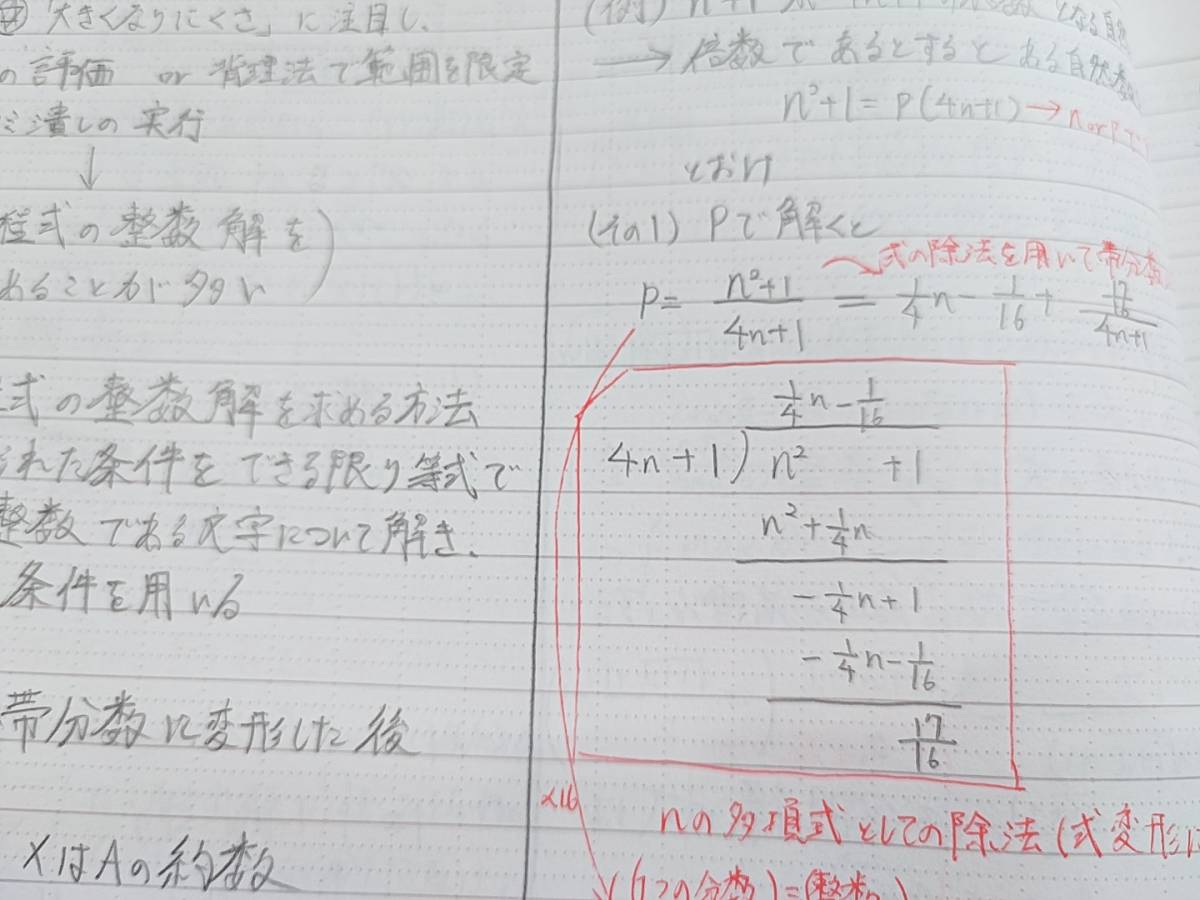 「大きくなりにくさ」に注目し、
の評価 or 背理法で範囲を限定
潰しの実行
↓
程式の整数解を
あることが多い
式の整数解を求める方法
れた条件をできる限り等式で
整数である文字について解き、
条件を用いる
帯分数に変形した後
XはAの約数
(例)
→ 倍数であるとするとある自然数
n²+1=P(4n+1) → n or Pで
とおけ
(その1) Pで解くと
式の除法を用いて帯分数
P= n²+1/4n+1 = 1/4n - 1/16 + 17/16/4n+1
1/4n - 1/16
4n+1) n² +1
n²+1/4n
-1/4n+1
-1/4n-1/16
17/16
×16
nの多項式としての除法(式変形に
(1つの分数)=(整数)